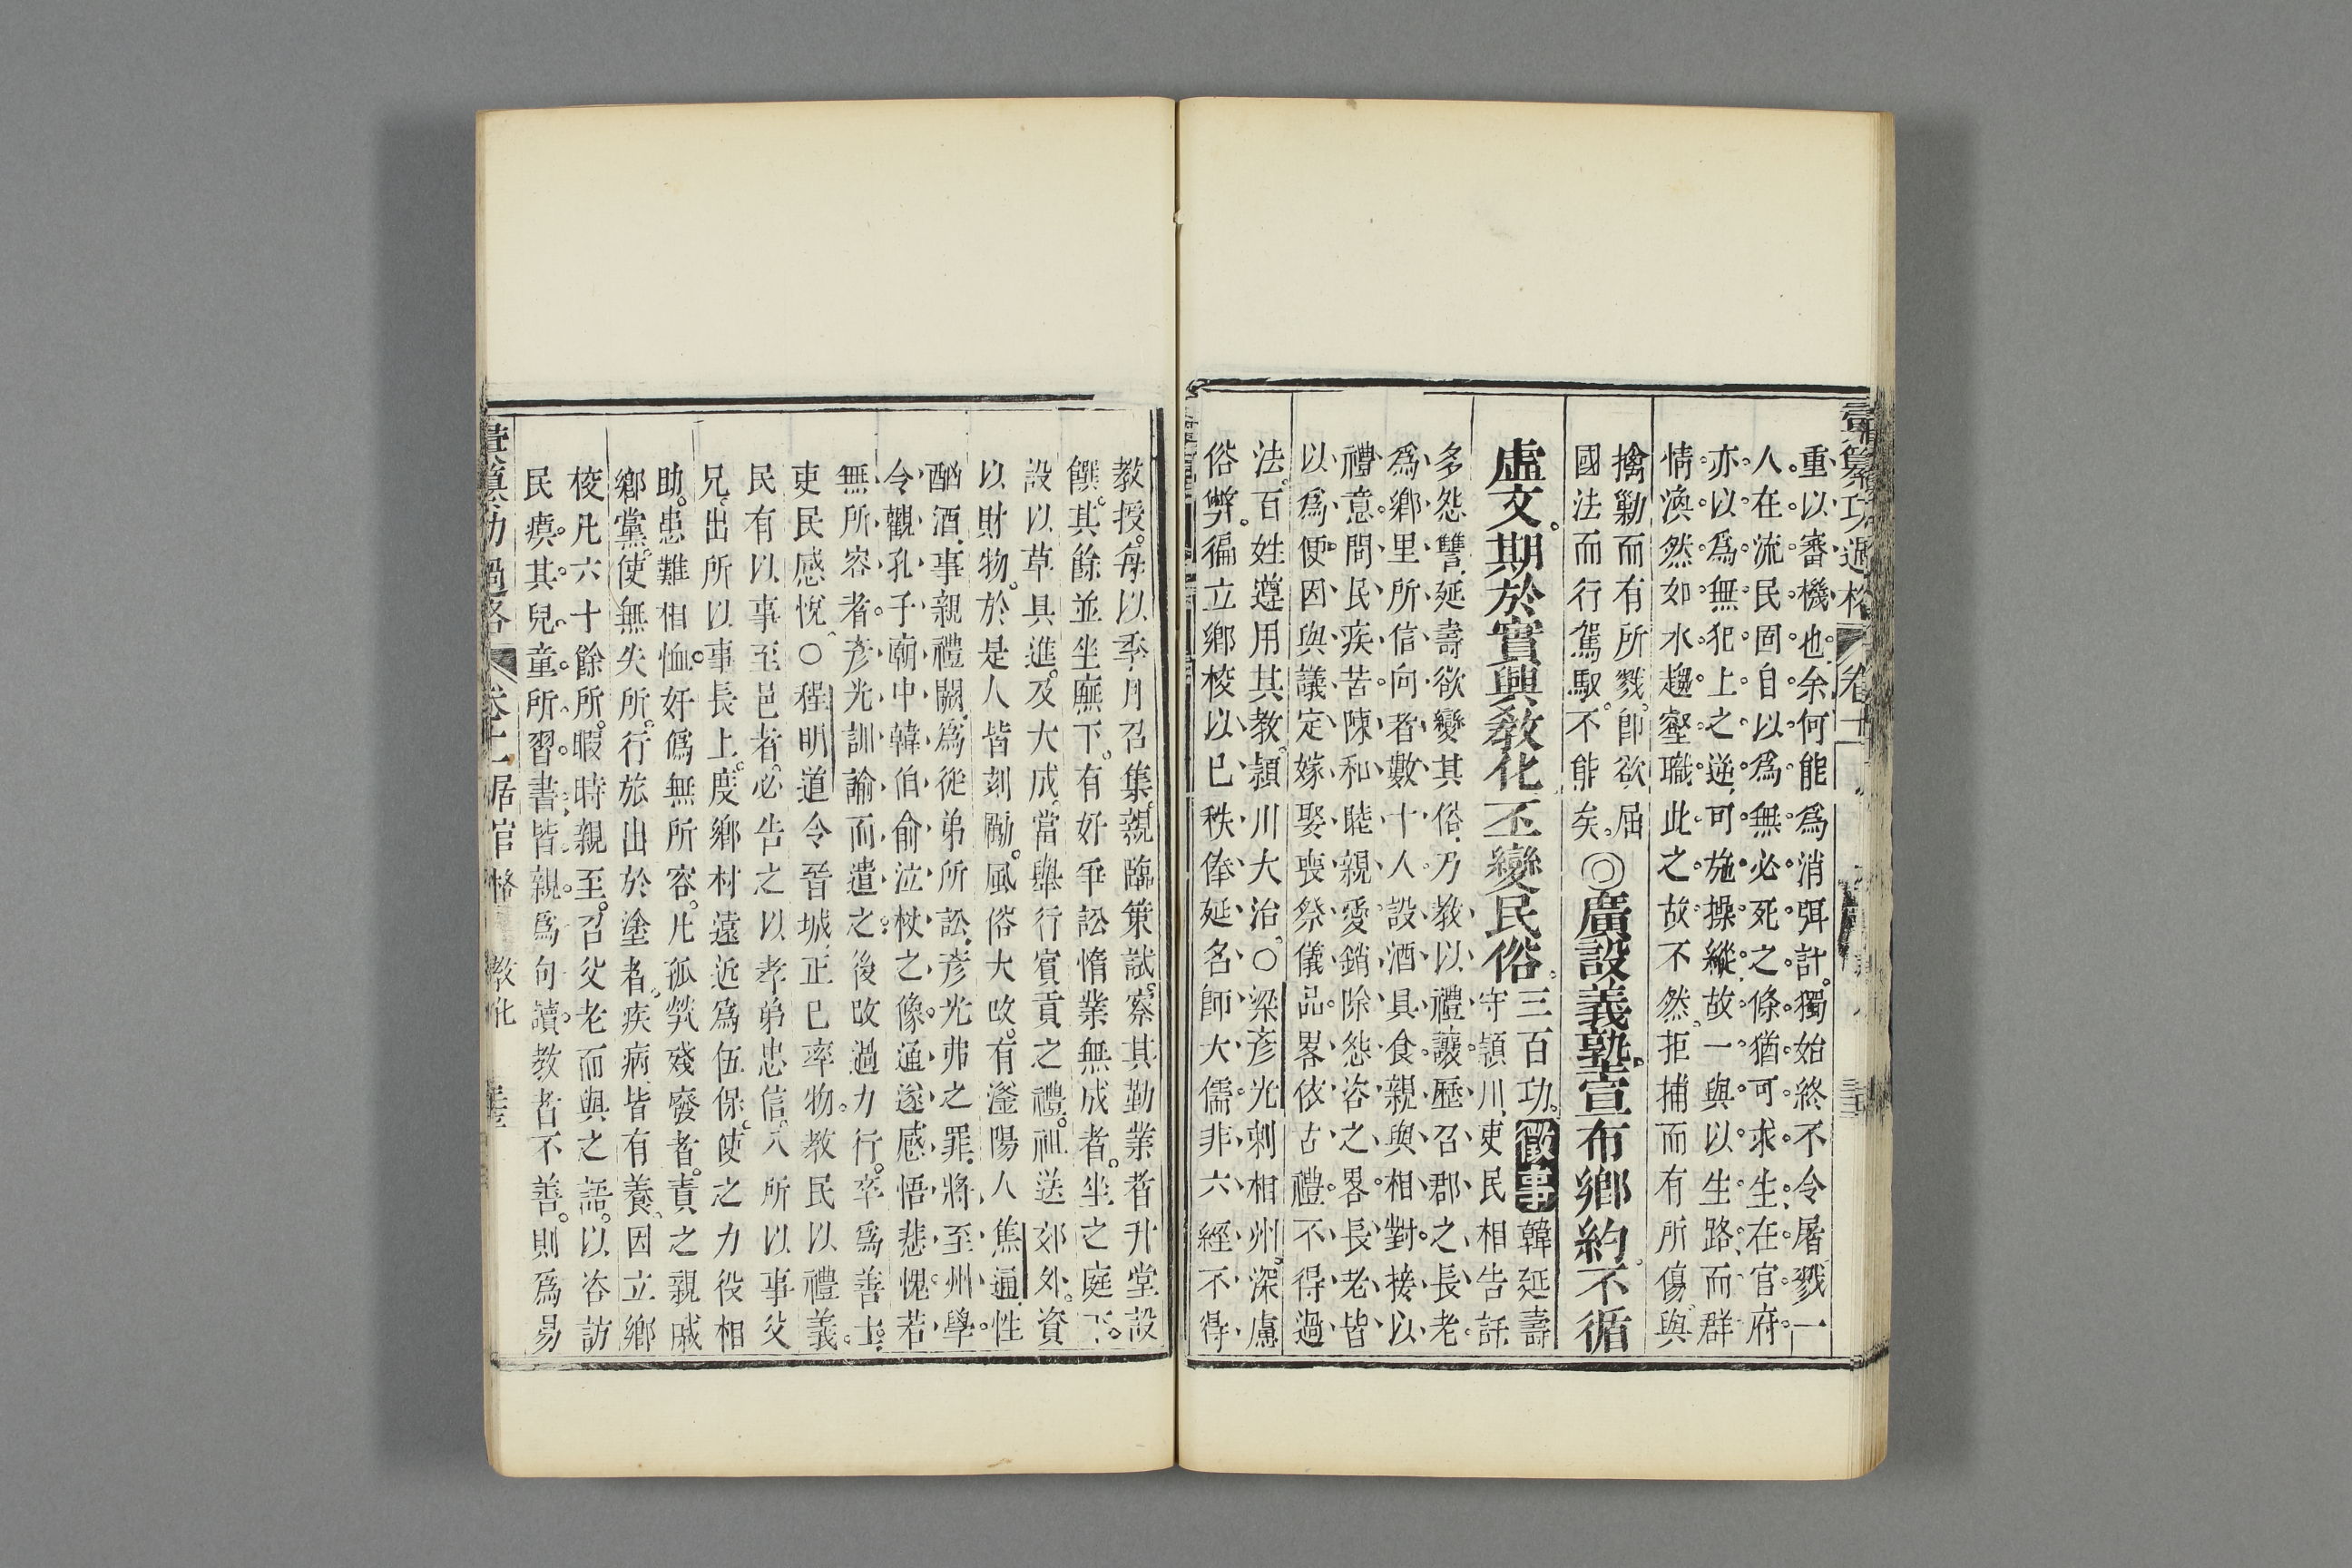 彙纂功過格 卷十
重以審機也余何能爲消弭計獨始終不令屠戮一
人在流民固自以爲無必死之條猶可求生在官府
亦以爲無犯上之逆可施操縱故一與以生路而群
情渙然如水趨壑職此之故不然拒捕而有所傷與
擒勦而有所戮即欲屈
國法而行駕馭不能矣
◎廣設義塾宣布鄉約不循
虛文期於實興教化丕變民俗
三百功徵事韓延壽
守潁川吏民相告訐
多怨讐延壽欲變其俗乃教以禮讓歷召郡之長老
爲鄉里所信向者數十人設酒具食親與相對接以
禮意問民疾苦陳和睦親愛銷除怨咨之畧長老皆
以爲便因與議定嫁娶喪祭儀品畧依古禮不得過
法百姓遵用其教潁川大治○梁彥光刺相州深慮
俗弊徧立鄉校以已秩俸延名師大儒非六經不得
教授每以季月召集親臨策試察其勤業者升堂設
饌其餘並坐廡下有好爭訟惰業無成者坐之庭下
設以草具進及大成當舉行賓貢之禮祖送郊外資
以財物於是人皆刻勵風俗大改有滏陽人焦通性
酗酒事親禮闕爲從弟所訟彥光弗之罪將至州學
令觀孔子廟中韓伯俞泣杖之像通遂感悟悲愧若
無所容者彥光訓諭而遣之後改過力行卒爲善士
吏民感悅○程明道令晉城正已率物教民以禮義
民有以事至邑者必告之以孝弟忠信入所以事父
兄出所以事長上度鄉村遠近爲伍保使之力役相
助患難相恤奸僞無所容凡孤煢殘廢者責之親戚
鄉黨使無失所行旅出於塗者疾病皆有養因立鄉
校凡六十餘所暇時親至召父老而與之語以咨訪
民瘼其兒童所習書皆親爲句讀教者不善則爲易
彙纂功過格 卷十一居官格 教化